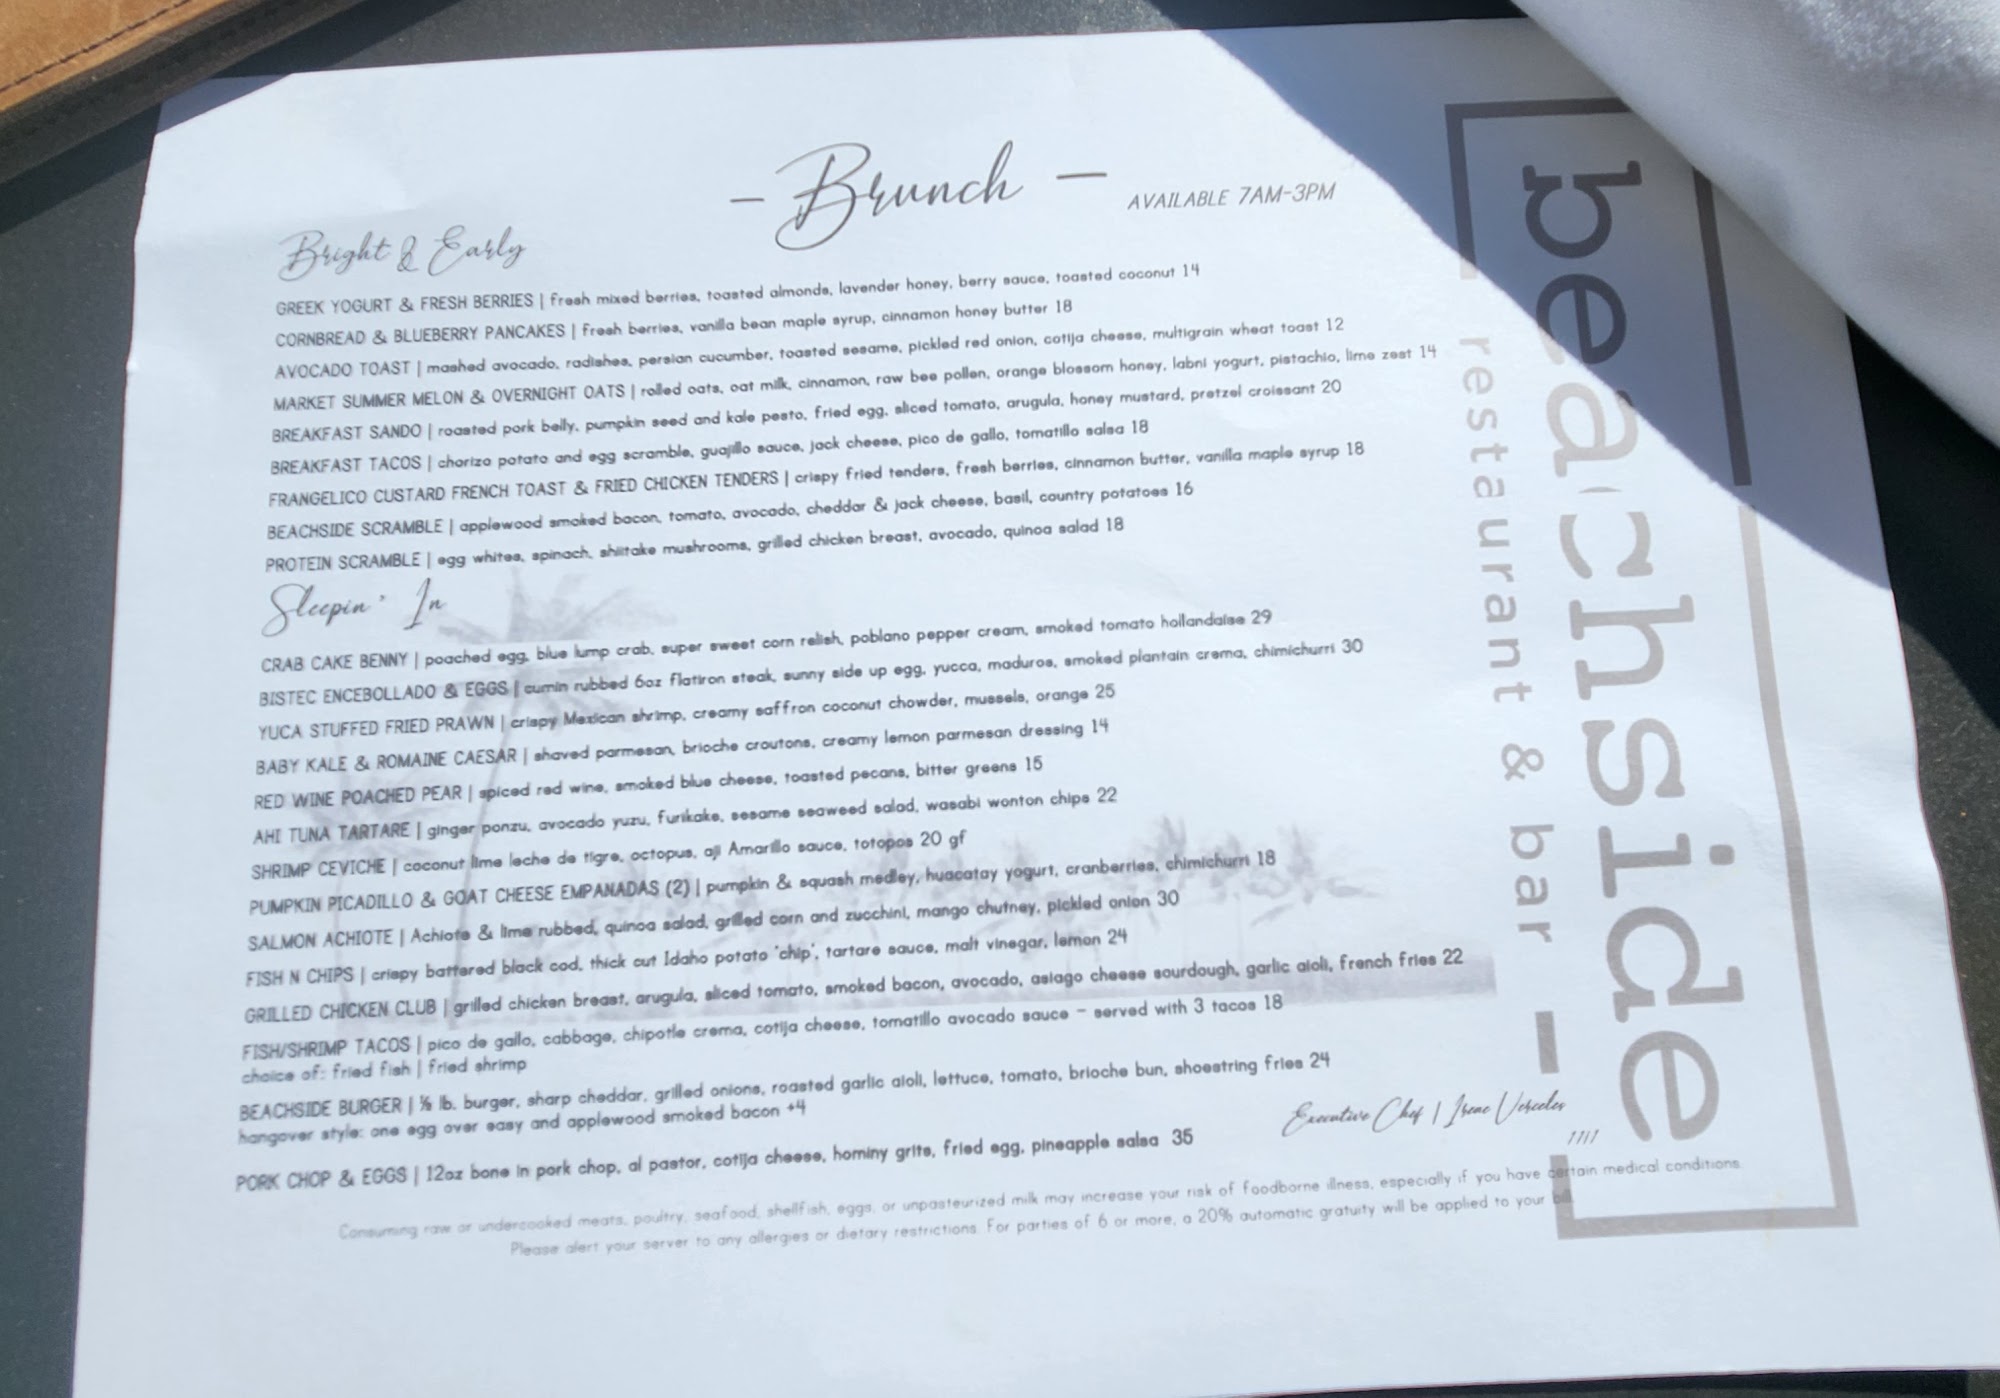 - Brunch -
AVAILABLE 7AM-3PM
Bright & Early
GREEK YOGURT & FRESH BERRIES | fresh mixed berries, toasted almonds, lavender honey, berry sauce, toasted coconut 14
CORNBREAD & BLUEBERRY PANCAKES | fresh berries, vanilla bean maple syrup, cinnamon honey butter 18
AVOCADO TOAST | mashed avocado, radishes, persian cucumber, toasted sesame, pickled red onion, cotija cheese, multigrain wheat toast 12
MARKET SUMMER MELON & OVERNIGHT OATS | rolled oats, oat milk, cinnamon, raw bee pollen, orange blossom honey, labni yogurt, pistachio, lime zest 14
BREAKFAST SANDO | roasted pork belly, pumpkin seed and kale pesto, fried egg, sliced tomato, arugula, honey mustard, pretzel croissant 20
BREAKFAST TACOS | chorizo potato and egg scramble, guajillo sauce, jack cheese, pico de gallo, tomatillo salsa 18
FRANGELICO CUSTARD FRENCH TOAST & FRIED CHICKEN TENDERS | crispy fried tenders, fresh berries, cinnamon butter, vanilla maple syrup 18
BEACHSIDE SCRAMBLE | applewood smoked bacon, tomato, avocado, cheddar & jack cheese, basil, country potatoes 16
PROTEIN SCRAMBLE | egg whites, spinach, shiitake mushrooms, grilled chicken breast, avocado, quinoa salad 18
Sleepin' In
CRAB CAKE BENNY | poached egg, blue lump crab, super sweet corn relish, poblano pepper cream, smoked tomato hollandaise 29
BISTEC ENCEBOLLADO & EGGS | cumin rubbed 6oz flatiron steak, sunny side up egg, yucca, maduros, smoked plantain crema, chimichurri 30
YUCA STUFFED FRIED PRAWN | crispy Mexican shrimp, creamy saffron coconut chowder, mussels, orange 25
BABY KALE & ROMAINE CAESAR | shaved parmesan, brioche croutons, creamy lemon parmesan dressing 14
RED WINE POACHED PEAR | spiced red wine, smoked blue cheese, toasted pecans, bitter greens 15
AHI TUNA TARTARE | ginger ponzu, avocado yuzu, furikake, sesame seaweed salad, wasabi wonton chips 22
SHRIMP CEVICHE | coconut lime leche de tigre, octopus, aji Amarillo sauce, totopos 20 gf
PUMPKIN PICADILLO & GOAT CHEESE EMPANADAS (2) | pumpkin & squash medley, huacatay yogurt, cranberries, chimichurri 18
SALMON ACHIOTE | Achiote & lime rubbed, quinoa salad, grilled corn and zucchini, mango chutney, pickled onion 30
FISH N CHIPS | crispy battered black cod, thick cut Idaho potato 'chip', tartare sauce, malt vinegar, lemon 24
GRILLED CHICKEN CLUB | grilled chicken breast, arugula, sliced tomato, smoked bacon, avocado, asiago cheese sourdough, garlic aioli, french fries 22
FISH/SHRIMP TACOS | pico de gallo, cabbage, chipotle crema, cotija cheese, tomatillo avocado sauce - served with 3 tacos 18
choice of: fried fish | fried shrimp
BEACHSIDE BURGER | ½ lb. burger, sharp cheddar, grilled onions, roasted garlic aioli, lettuce, tomato, brioche bun, shoestring fries 24
hangover style: one egg over easy and applewood smoked bacon +4
PORK CHOP & EGGS | 12oz bone in pork chop, al pastor, cotija cheese, hominy grits, fried egg, pineapple salsa 35
Executive Chef | Irene Verceles
Consuming raw or undercooked meats, poultry, seafood, shellfish, eggs, or unpasteurized milk may increase your risk of foodborne illness, especially if you have certain medical conditions.
Please alert your server to any allergies or dietary restrictions. For parties of 6 or more, a 20% automatic gratuity will be applied to your bill.
beachside
restaurant & bar